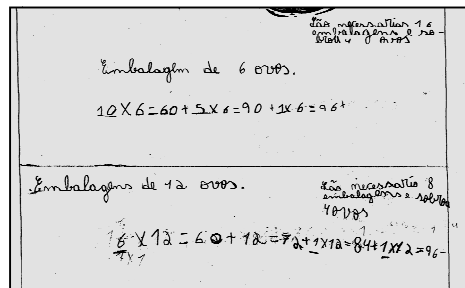 São necessarias 16
embalagens e so-
brou 4 ovos
Embalagem de 6 ovos.
10 X 6 = 60 + 5 X 6 = 90 + 1 X 6 = 96 +
Embalagens de 12 ovos.
São necessario 8
embalagens e sobrou
4 ovos
X 12 = 60 + 12 = 72 + 1 X 12 = 84 + 1 X 12 = 96 -